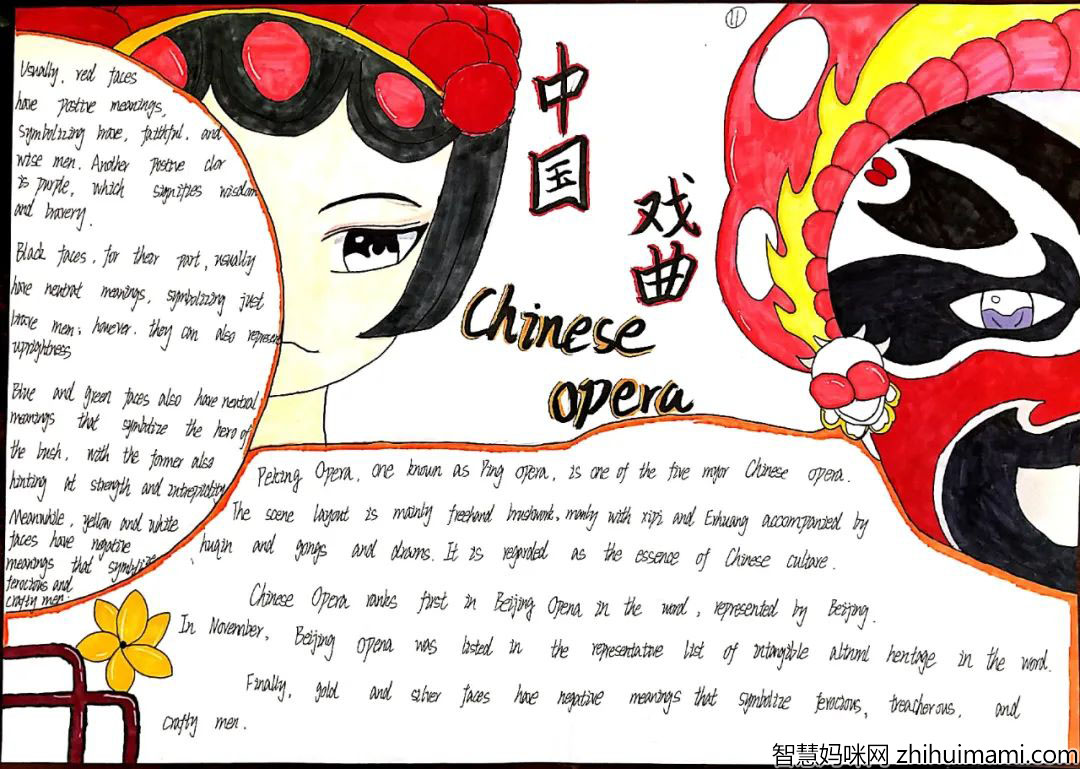 11
中
国
戏
曲
Chinese
opera
Usually, red faces
have postive meanings,
symbolizing brave, faithful, and
wise men. Another postive clor
is purple, which signifies wisdom
and bravery.
Black faces, for their part, usually
have neutral meanings, symbolizing just
brave men; however, they can also represent
uprightness
Blue and green faces also have neutral
meanings that symbolize the hero of
the bush, with the former also
hinting at strength and intrepidity
Meanwhile, yellow and white
faces have negative
meanings that symbolize
ferocious and
crafty men.
Peking Opera, one known as Ping opera, is one of the five major Chinese opera.
The scene layout is mainly freehand brushwork, manly with xipi and Erhuang accompanied by
huqin and gongs and drums. It is regarded as the essence of Chinese culture.
Chinese Opera ranks first in Beijing Opena in the word, represented by Beijing.
In November, Beijing opena was listed in the representative list of intangible heritage in the word.
Finally, gold and silver faces have negative meanings that symbolize ferocious, treacherous, and
crafty men.
智慧妈咪网 zhihuimami.com